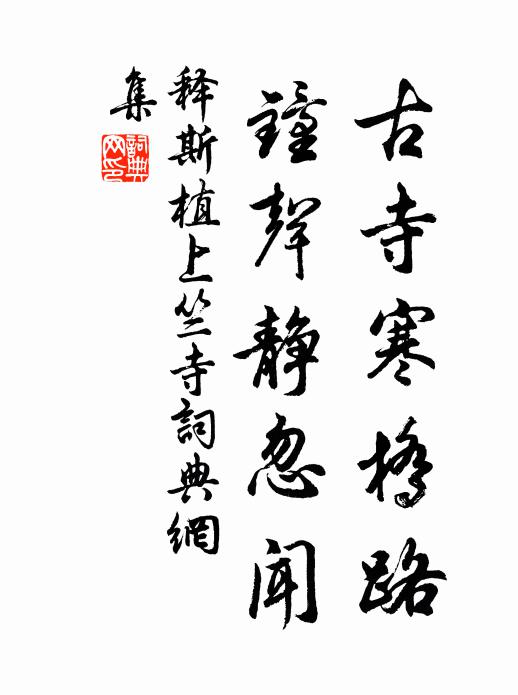 古寺寒橋路
鐘聲靜忽聞
释斯植上竺寺詞典網
集
詞典
网印